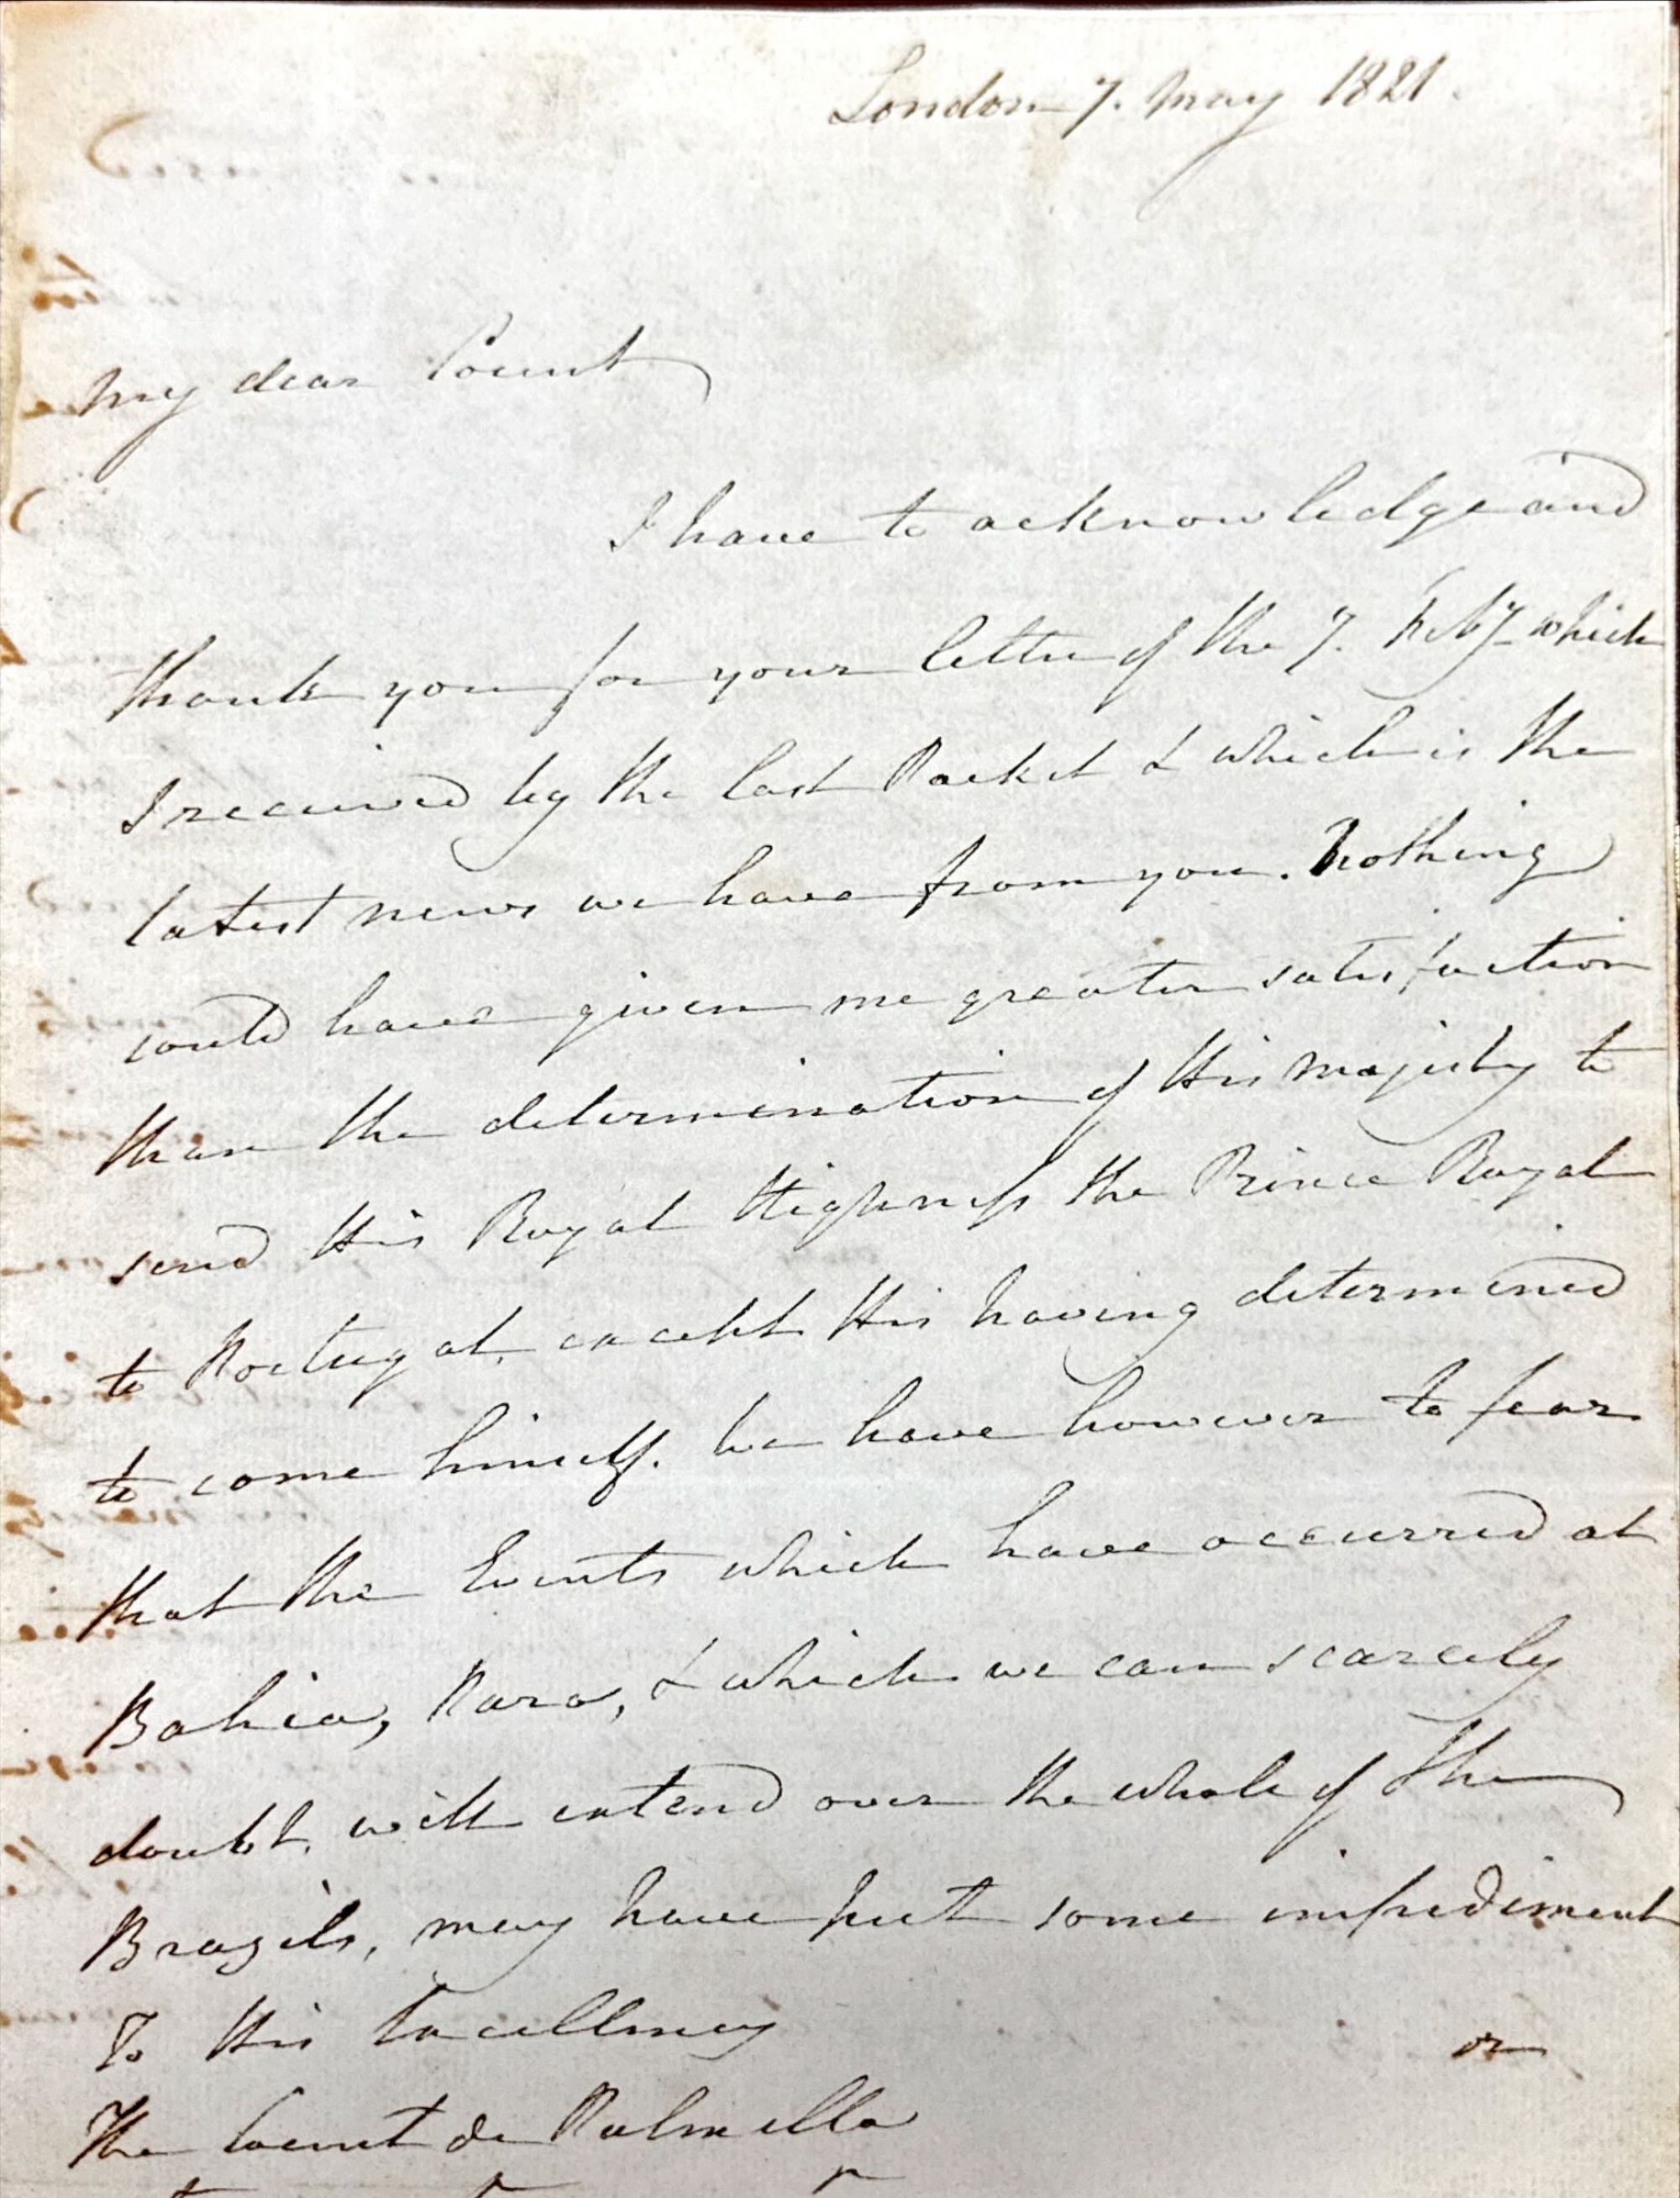 London 7. May 1821.
My dear Count
I have to acknowledge and
thank you for your letter of the 7. Feby. which
I received by the last Packet & which is the
latest news we have from you. Nothing
could have given me greater satisfaction
than the determination of His Majesty to
send His Royal Highness the Prince Royal
to Portugal, except His having determined
to come himself. We have however to fear
that the Events which have occurred at
Bahia, Para, & which we can scarcely
doubt, will extend over the whole of the
Brazils, may have put some impediment
or
To His Excellency
The Count de Palmella